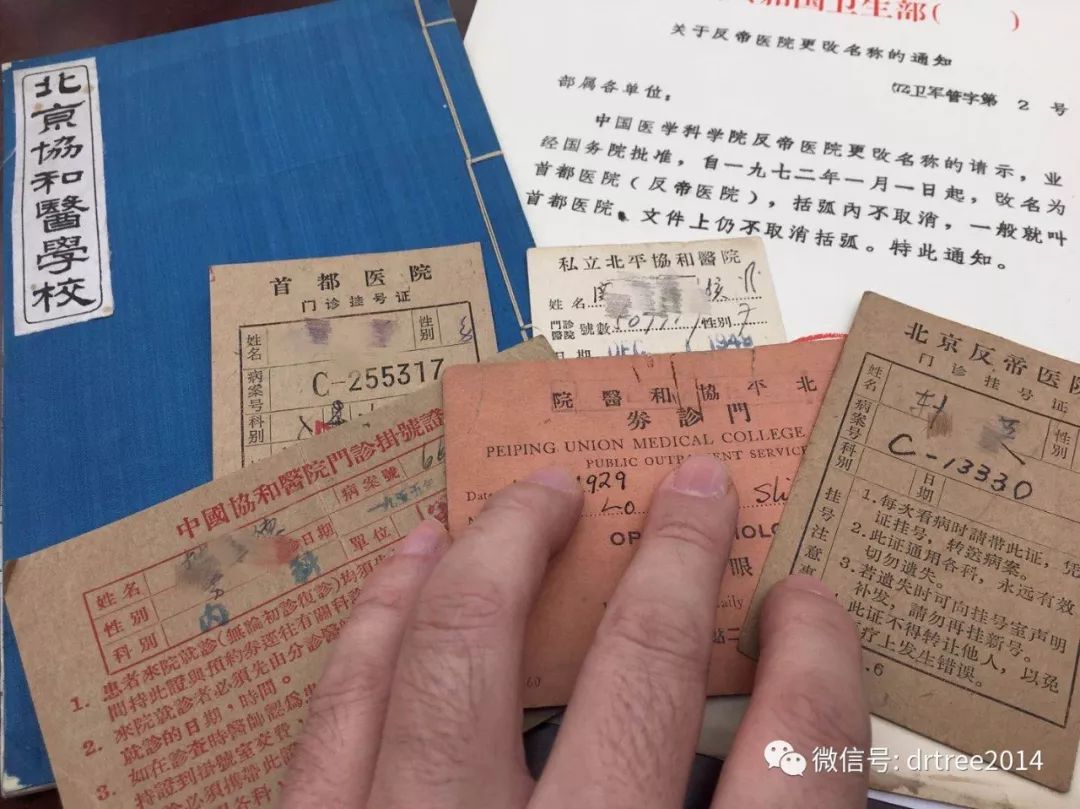 北京協和醫學校
国卫生部( )
关于反帝医院更改名称的通知
(72)卫军管字第 2 号
部属各单位：
中国医学科学院反帝医院更改名称的请示，业
经国务院批准，自一九七二年一月一日起，改名为
首都医院（反帝医院），括弧内不取消，一般就叫
首都医院。文件上仍不取消括弧。特此通知。
首都医院
门诊挂号证
姓名
性别
病案号
C-255317
科别
私立北平協和醫院
姓名
門診
醫院
號數
性別
日期 DEC 1948
中國協和醫院門診掛號證
病案號
姓名
日期
性別
單位
科別 内
1. 患者來院就診(無論初診復診)均須先
間持此證與預約券逕往有關科診
2. 來院就診者必須先由分診醫
就診的日期，時間。
3. 如在診查時醫師認為患
持證到掛號室交費
必須攜帶此證
院醫和協平北
券診門
PEIPING UNION MEDICAL COLLEGE
PUBLIC OUTPATIENT SERVICE
Date 1929
Lo
眼
北京反帝医院
门诊挂号证
姓名
性别
病案号
C-13330
科别
日期
挂号注意事
1. 每次看病时請带此证，凭
证挂号，转送病案。
2. 此证通用各科，永远有效
切勿遗失。
3. 若遗失时可向挂号室声明
补发，請勿再挂新号。
此证不得转让他人，以免
疗上发生错误。
微信号: drtree2014